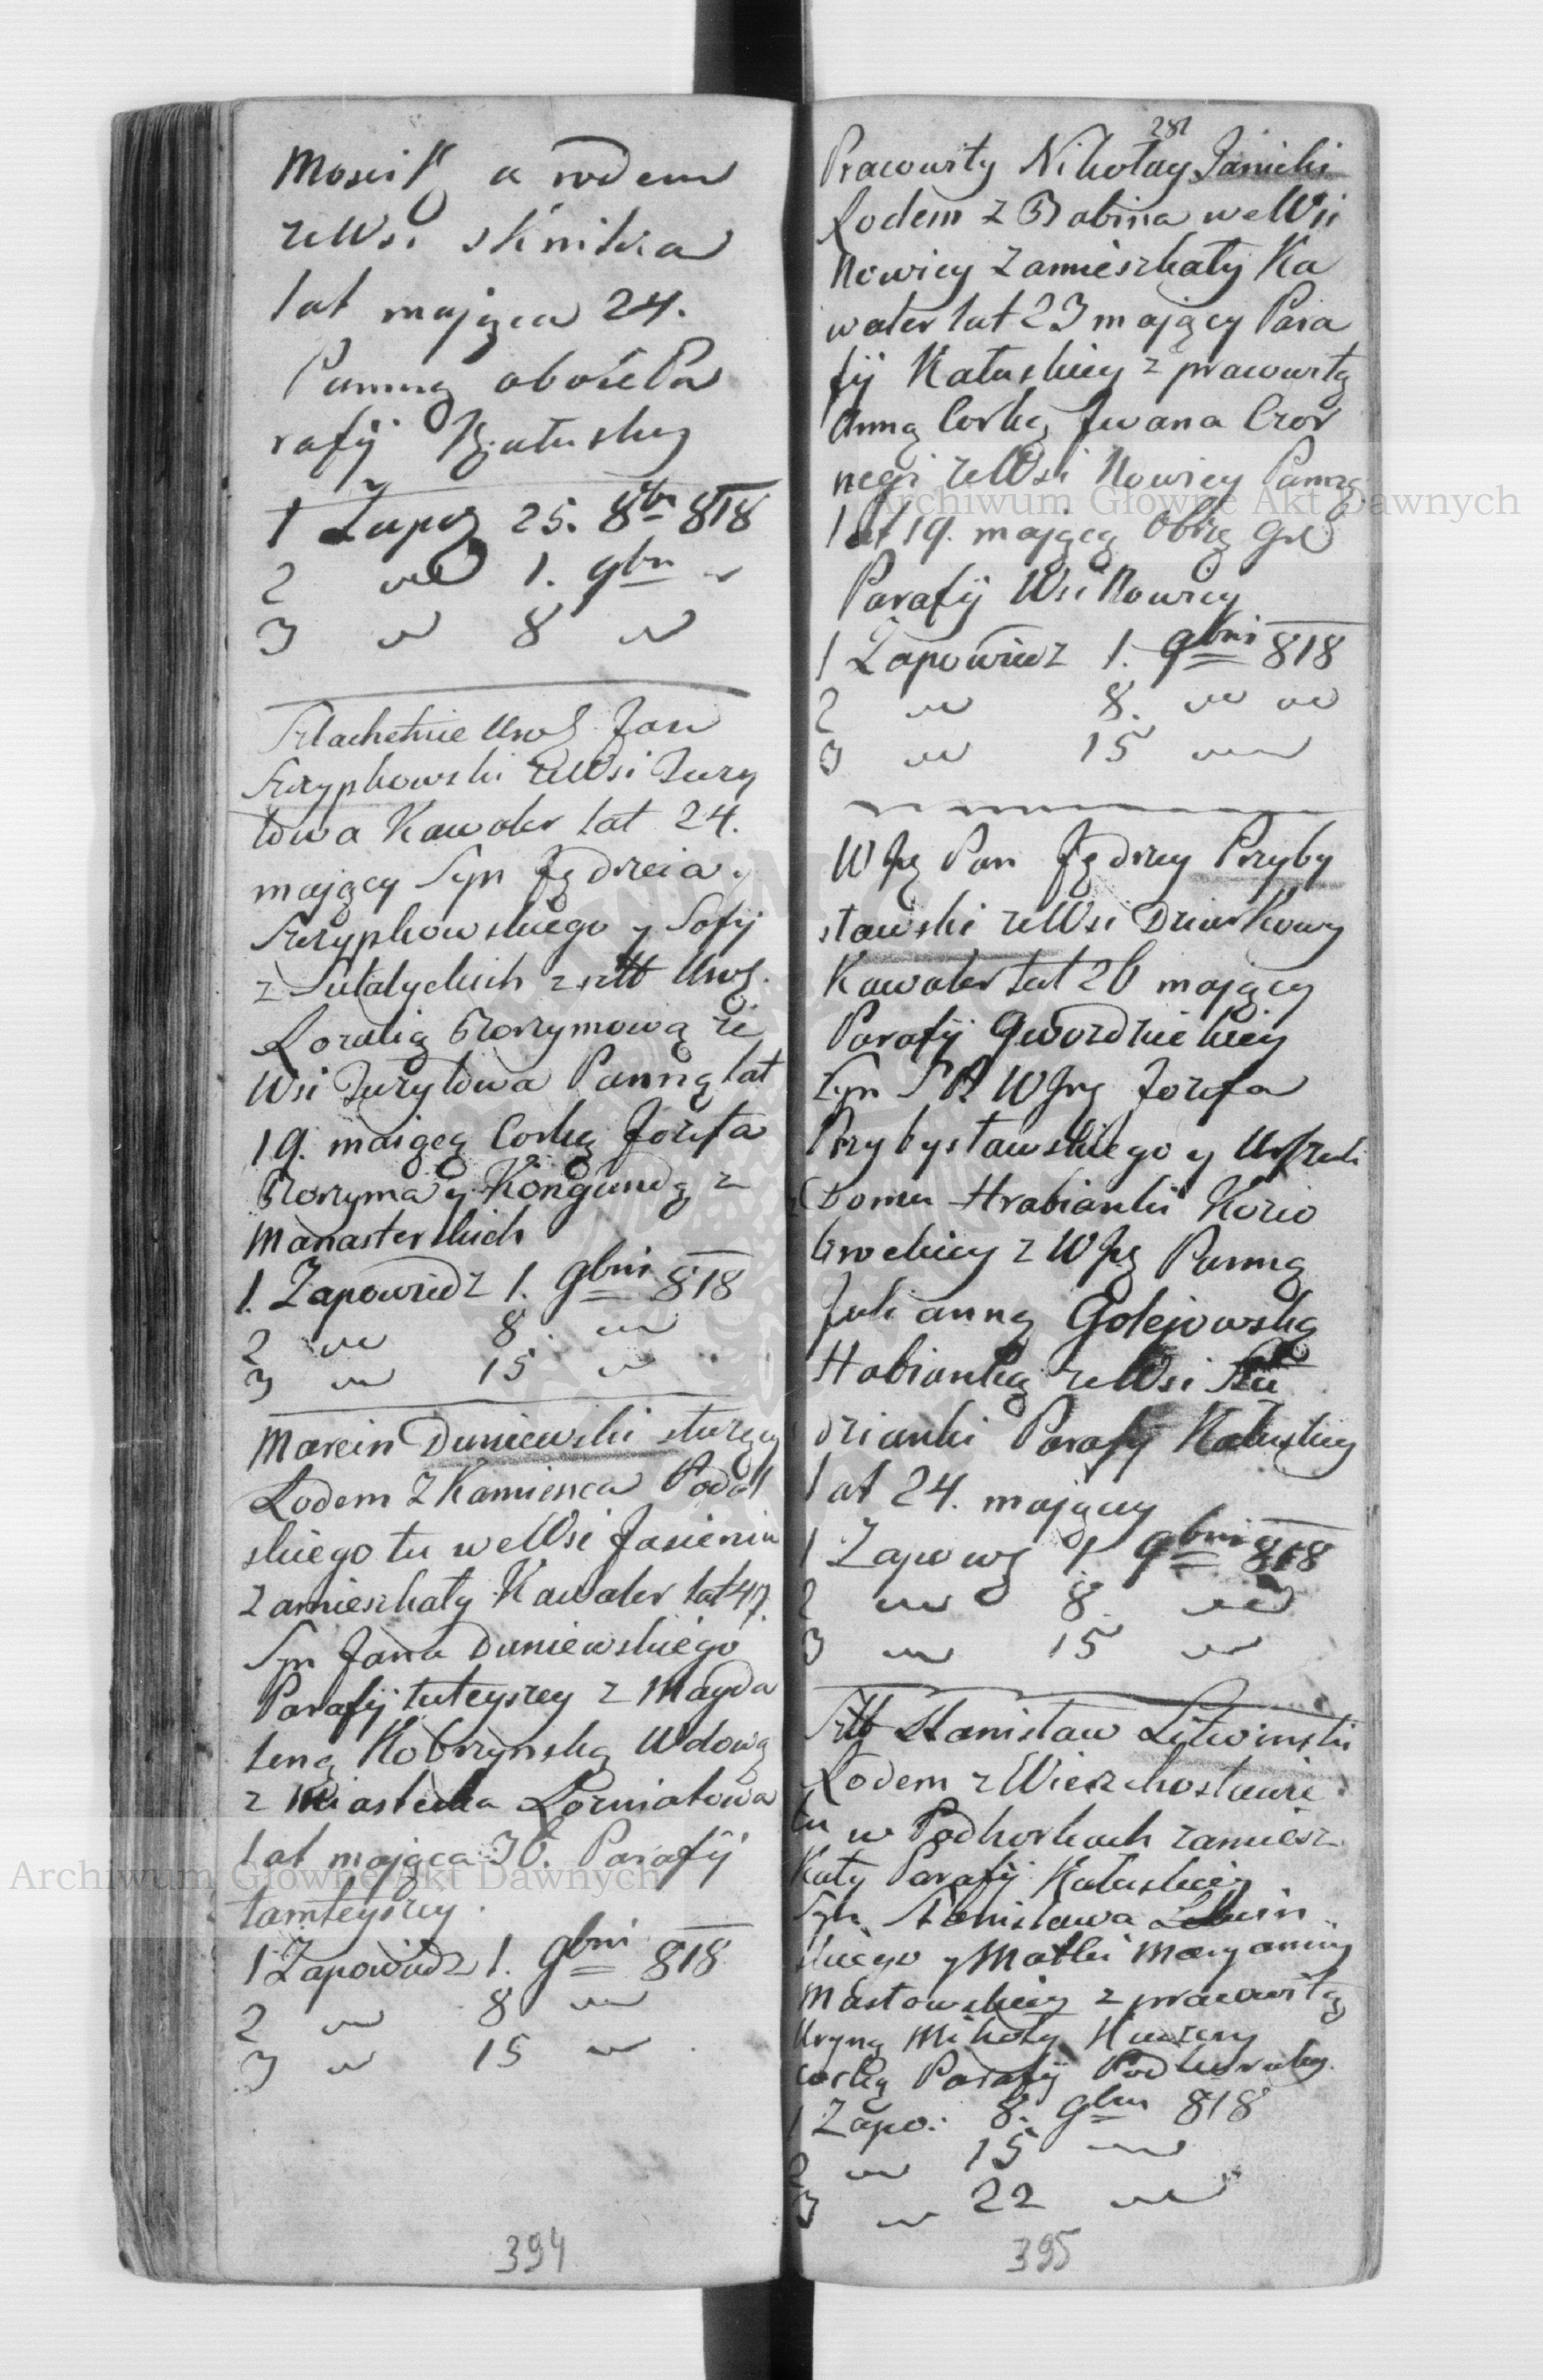 Mosij a rodem
ze Wsi sknitra
lat mająca 24.
Panną oboie Pa
rafij Kałuskiey
1 Zapoz 25. 8br 818
2 " 1. 9br "
3 " 8 "
Szlachetnie Uroz Jan
Skrypkowski ze Wsi Zury
towa Kawaler lat 24.
mający Syn Jędrzeia
Skrypkowskiego y Sofij
z Sulatyckich z Szlt Uroz.
Rozalią Thorzymową ze
Wsi Zurytowa Panną lat
19. maiącą Corką Jozefa
Thorzyma y Kongundą z
Manasterskich
1. Zapowiedz 1. 9bris 818
2 " 8. "
3 " 15 "
Marcin Duniewski służący
Rodem z Kamienca Podol
skiego tu we Wsi Jasieniu
zamieszkały Kawaler lat 47.
Syn Jana Duniewskiego
Parafij tuteyszey z Magda
leną Kobrzynską Wdową
z Miasteczka Rozniatowa
lat mająca 36. Parafij
tamteyszey.
1 Zapowiedz 1. 9bris 818
2 " 8 "
3 " 15 "
394
281
Prawowity Nikołay Janicki
Rodem z Babina we Wsi
Nowicy zamieszkały Ka
waler lat 23 mający Para
fij Kałuskiey z prawowitą
Anną Corką Jwana Czor
negi ze Wsi Nowicy Panną
lat 19. mającą Obrzą Gre
Parafij Wsi Nowicy
1 Zapowiedz 1. 9bris 818
2 " 8. " "
3 " 15 "
WJą Pan Jędrzey Przyby
sławski ze Wsi Dziurkowy
Kawaler lat 26 mający
Parafij Gwozdzieckiey
Syn SP. WJną Jozefa
Przybysławskiego y Urszuli
Domu Hrabianki Kozio
brodzkiey z WJą Panną
Julianną Golejowską
Habianką ze Wsi Stu
dzianki Parafij Kałuskiey
lat 24. mający
1 Zapowz 1. 9bris 818
2 " 8. "
3 " 15 "
Szlt Stanisław Litwinski
Rodem z Wierzchosławic
tu w Podhorkach zamiesz
kały Parafij Kałuskiey
Syn Stanisława Litwin
skiego y Matki Maryanny
Masłowskiey z prawowitą
Uryną Mikoły
corką Parafij Podhorskey.
1 Zapo: 8. 9bris 818
2 " 15 "
3 " 22 "
395
Archiwum Główne Akt Dawnych
Archiwum Główne Akt Dawnych